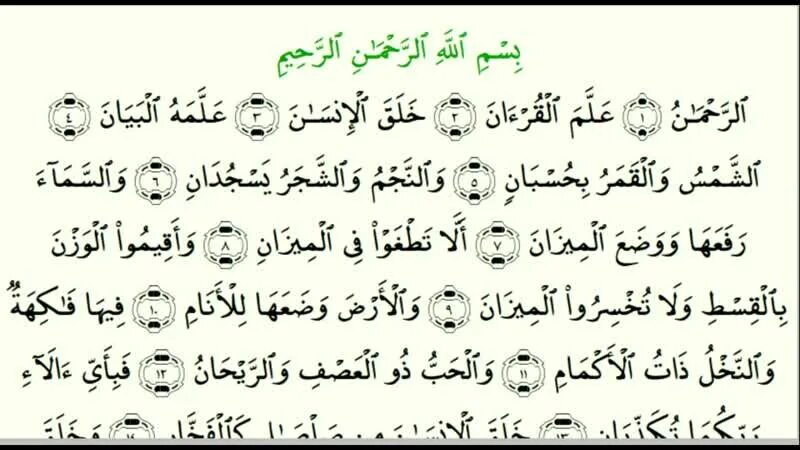 بِسْمِ ٱللَّهِ ٱلرَّحْمَـٰنِ ٱلرَّحِيمِ
ٱلرَّحْمَـٰنُ ١ عَلَّمَ ٱلْقُرْءَانَ ٢ خَلَقَ ٱلْإِنسَـٰنَ ٣ عَلَّمَهُ ٱلْبَيَانَ ٤
ٱلشَّمْسُ وَٱلْقَمَرُ بِحُسْبَانٍ ٥ وَٱلنَّجْمُ وَٱلشَّجَرُ يَسْجُدَانِ ٦ وَٱلسَّمَآءَ
رَفَعَهَا وَوَضَعَ ٱلْمِيزَانَ ٧ أَلَّا تَطْغَوْا۟ فِى ٱلْمِيزَانِ ٨ وَأَقِيمُوا۟ ٱلْوَزْنَ
بِٱلْقِسْطِ وَلَا تُخْسِرُوا۟ ٱلْمِيزَانَ ٩ وَٱلْأَرْضَ وَضَعَهَا لِلْأَنَامِ ١٠ فِيهَا فَـٰكِهَةٌ
وَٱلنَّخْلُ ذَاتُ ٱلْأَكْمَامِ ١١ وَٱلْحَبُّ ذُو ٱلْعَصْفِ وَٱلرَّيْحَانُ ١٢ فَبِأَىِّ ءَالَآءِ
رَبِّكُمَا تُكَذِّبَانِ ١٣ خَلَقَ ٱلْإِنسَـٰنَ مِن صَلْصَـٰلٍ كَٱلْفَخَّارِ ١٤ وَخَلَقَ